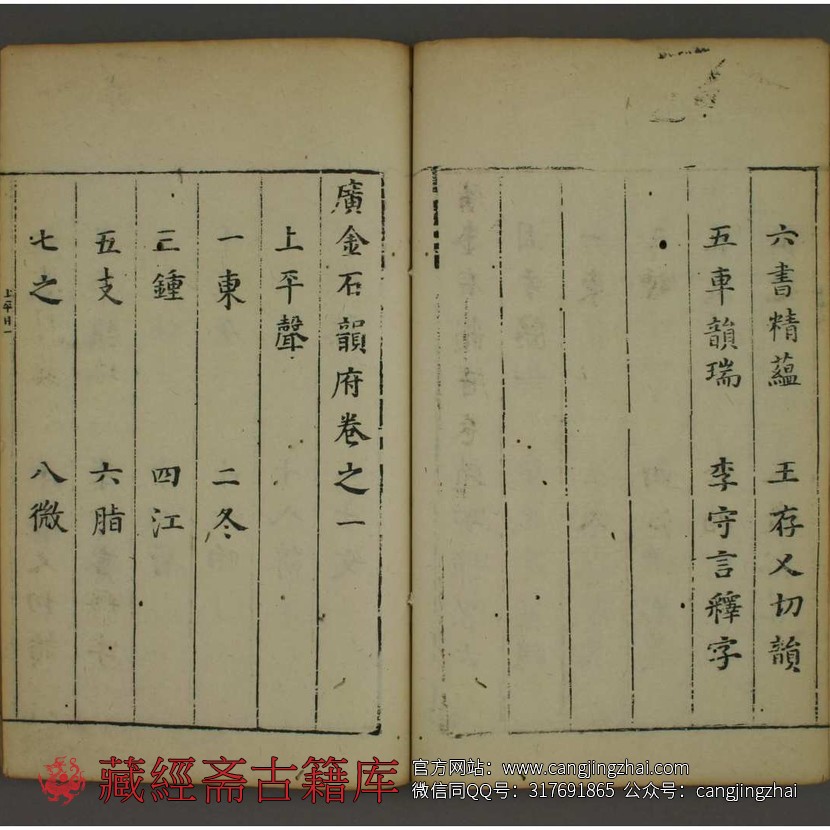 六書精蘊　王存乂切韻
五車韻瑞　李守言釋字
廣金石韻府卷之一
上平聲
一東　二冬
三鍾　四江
五支　六脂
七之　八微
藏經斋古籍库
官方网站：www.cangjingzhai.com
微信同QQ号：317691865 公众号：cangjingzhai